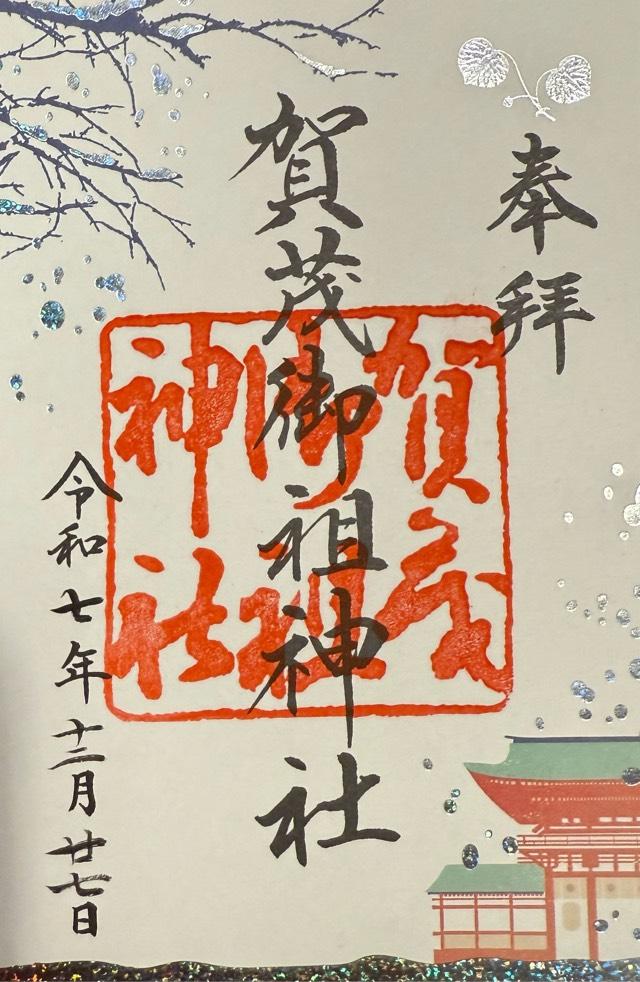 奉拝
賀茂御祖神社
賀茂
御祖
神社
令和七年十二月廿七日